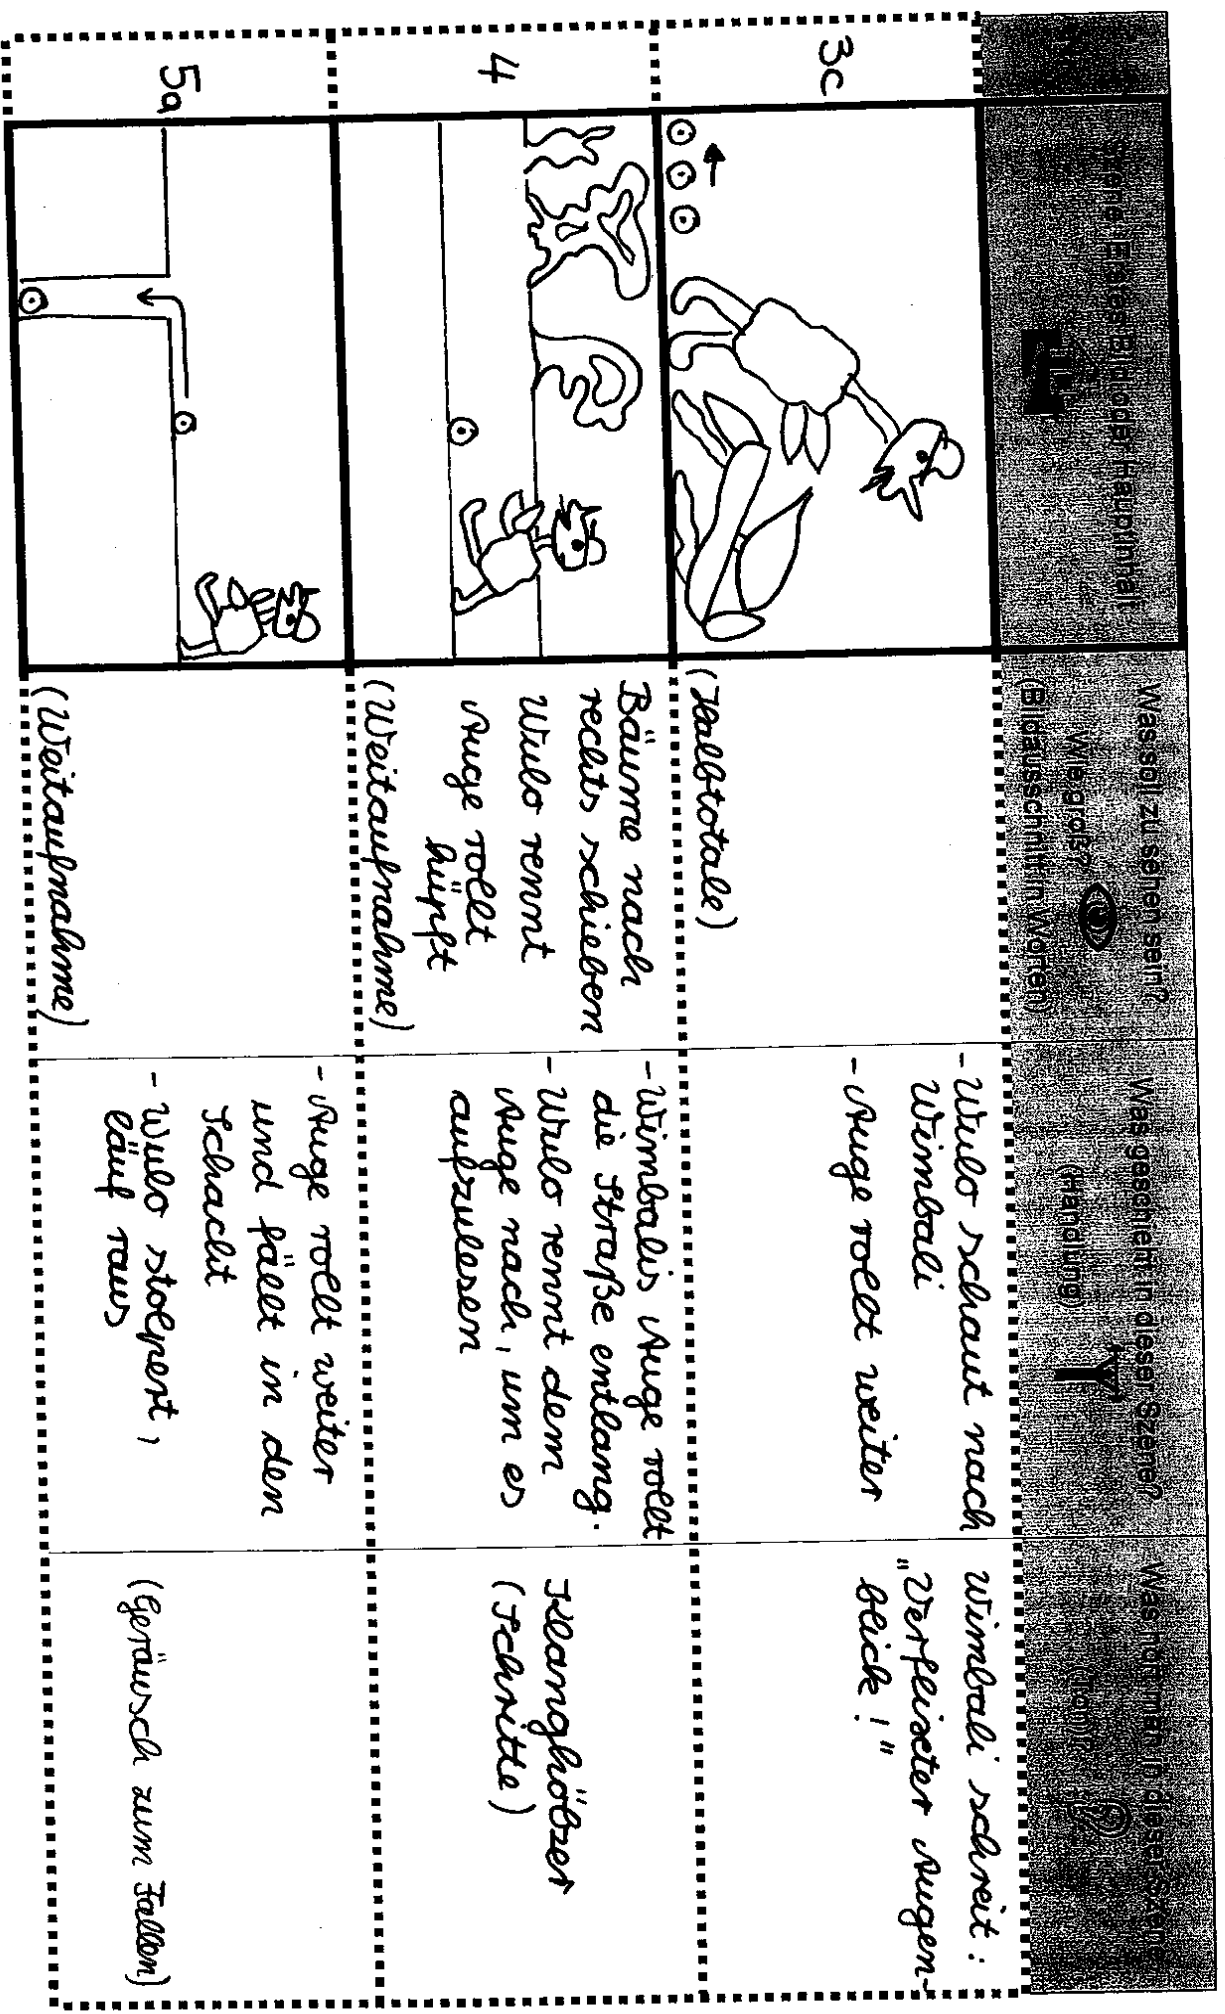 Erstes Bild oder Hauptinhalt
Was soll zu sehen sein?
Wie groß?
(Bildausschnitt in Worten)
Was geschieht in dieser Szene?
(Handlung)
Was hört man in dieser Szene
(Ton)?
3c
(Halbtotale)
- Wulo schaut nach
Wimbali
- Auge rollt weiter
Wimbali schreit:
„Verflixter Augen-
blick!"
4
Bäume nach
rechts schieben
Wulo rennt
Auge rollt
hüpft
(Weitaufnahme)
- Wimbalis Auge rollt
die Straße entlang.
- Wulo rennt dem
Auge nach, um es
aufzulesen
Klanghölzer
(Schritte)
5a
(Weitaufnahme)
- Auge rollt weiter
und fällt in den
Schacht
- Wulo stolpert,
läuf raus
(Geräusch zum Fallen)